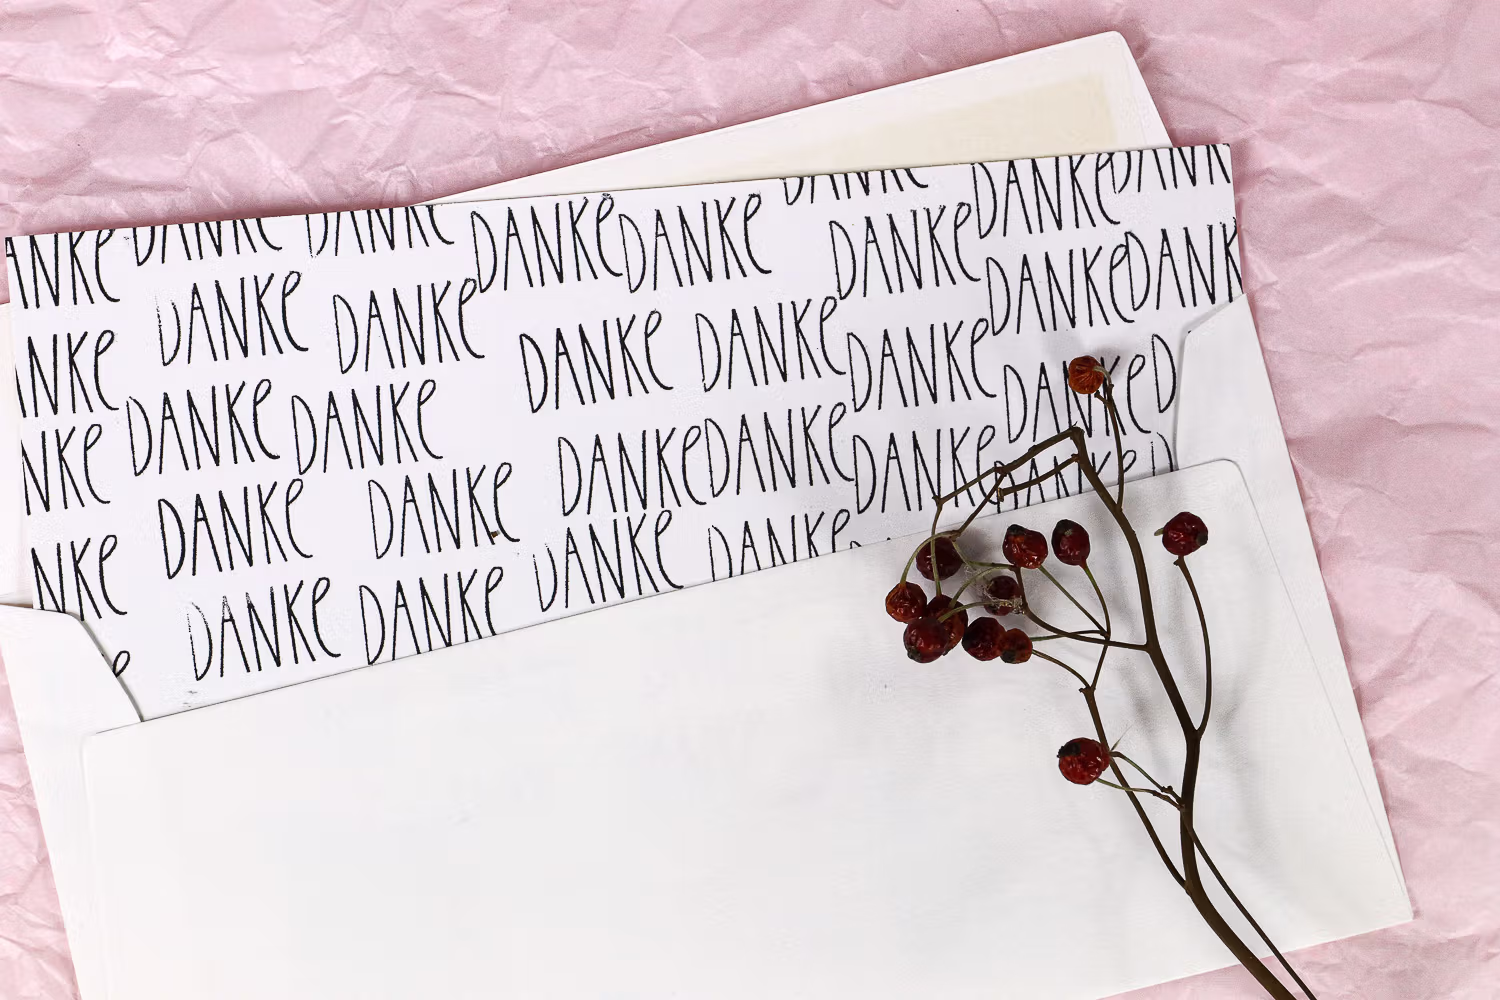 DANKE DANKE DANKE DANKE DANKE DANKE DANKE DANKE
DANKE DANKE DANKE DANKE DANKE
DANKE DANKE DANKE DANKE DANKE DANKE
DANKE DANKE DANKE DANKE DANKE DANKE
DANKE DANKE DANKE DANKE
DANKE DANKE